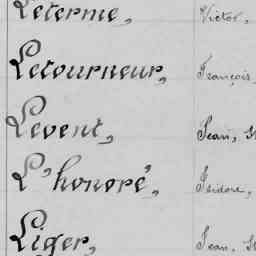 Leterme, Victor,
Letourneur, François
Levent, Jean, St
L'honoré, Isidore,
Liger, Jean, St